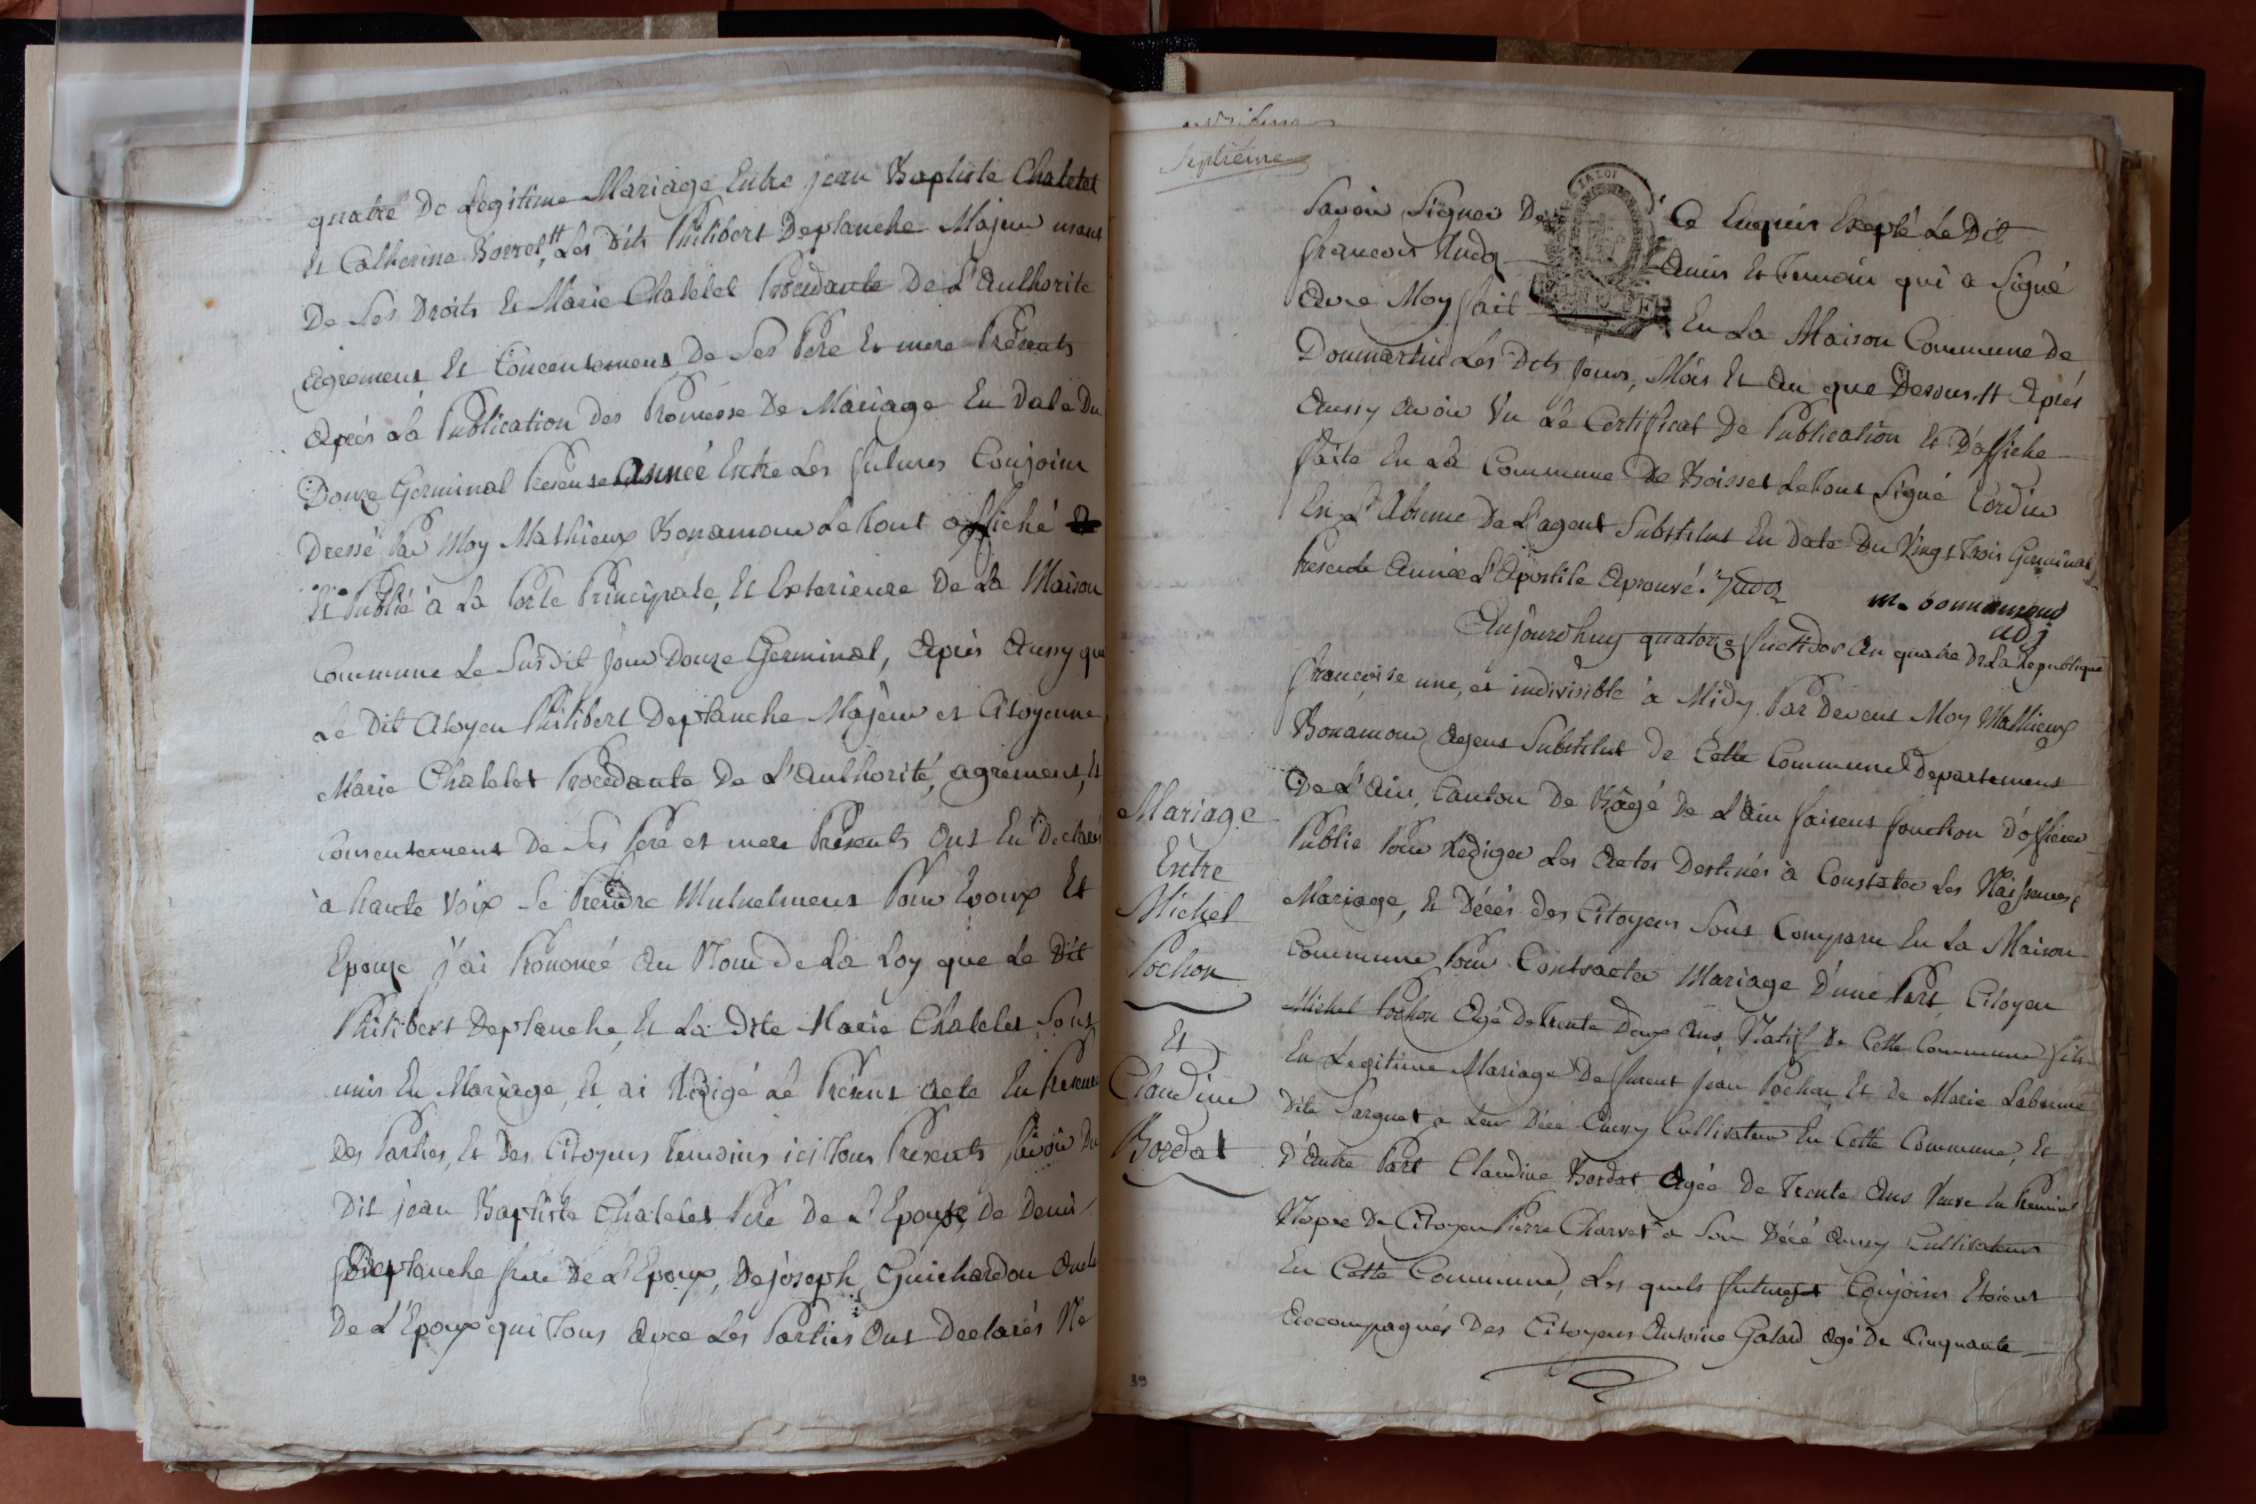 quatre De Legitime Mariage Entre jean Baptiste Chatelet
Et Catherine Borret, Les Dits Philibert Deplanche Majeur usant
De Ses Droits Et Marie Chatelet Procedante De L'Authorité
Agrement Et Concentement De Ses Pere Et mere Présents
Après La Publication Des Promesse De Mariage En Date Du
Douze Germinal Presente Année Entre Les futures Conjoint
Dressé Par Moy Mathieux Bonamour Le Tout affiché
Et Publié à La Porte Principale, Et Exterieure De La Maison
Commune Le Susdit jour Douze Germinal, Après Aussy que
Le Dit Citoyen Philibert Deplanche Majeur et Citoyenne
Marie Chatelet Procédante De L'Authorité, agrement, Et
Consentement De Ses Pere et mere Présents Ont Eu Declaré
à haute Voix Se Prendre Mutuelment Pour Epoux Et
Epouze j'ai Prononcé Au Nom De La Loy que Le Dit
Philibert Deplanche, Et La Dite Marie Chatelet Sont
unis En Mariage, Et ai Rédigé Le Présent Acte En Presence
Des Parties, Et Des Citoyens Temoins ici Tous Presents Savoir Du
Dit jean Baptiste Chatelet Pere De L'Epouze, De Denis
Deplanche frere De L'Epoux, De joseph Guichardon Oncle
De L'Epoux qui Tous Avec Les Parties Ont Declarés Ne
Septieme
Savoir Signer De Ce Enquis Exepté Le Dit
françois Amis Et Temoin qui a Signé
Avec Moy fait En La Maison Commune De
Dommartin Les Dits jours, Mois Et An que Dessus Après
Aussy Avoir Vu Le Certifficat De Publication Et D'affiche
faite En La Commune De Boisset Le Tout Signé Cordier
En L'Absence De L'agent Substitut En Date Du Vingt Trois Germinal
Presente Année L'Apostile Aprouvé.
m. bonnamour
adj
Aujourdhuy quatorze fructidor An quatre De La Republique
françoise une, et indivisible à Midy Par Devent Moy Mathieux
Bonamour Agent Substitut De Cette Commune Departement
De L'Ain, Canton De Bâgé De L'ain faisent fonction D'officier
Public Pour Rediger Les Actes Destinés à Constater Les Naissances
Mariage, Et Décés Des Citoyens Sont Comparu En La Maison
Commune Pour Contracter Mariage D'une Part Citoyen
Michel Pochon Agé De Trente Deux Ans Natif De Cette Commune fils
En Legitime Mariage De furent jean Pochon Et De Marie Labonne
Dite a Leur Décé Aussy Cultivateur En Cette Commune, Et
D'Autre Part Claudine Bordat Agée De Trente Ans Veuve En Premiere
Nopce De Citoyen Pierre Charvet a Son Décé Aussy Cultivateur
En Cette Commune, Les quels futures Conjoint Etoient
Accompagnés Des Citoyens Antoine Galard agé De Cinquante
Mariage
Entre
Michel
Pochon
Et
Claudine
Bordat
39